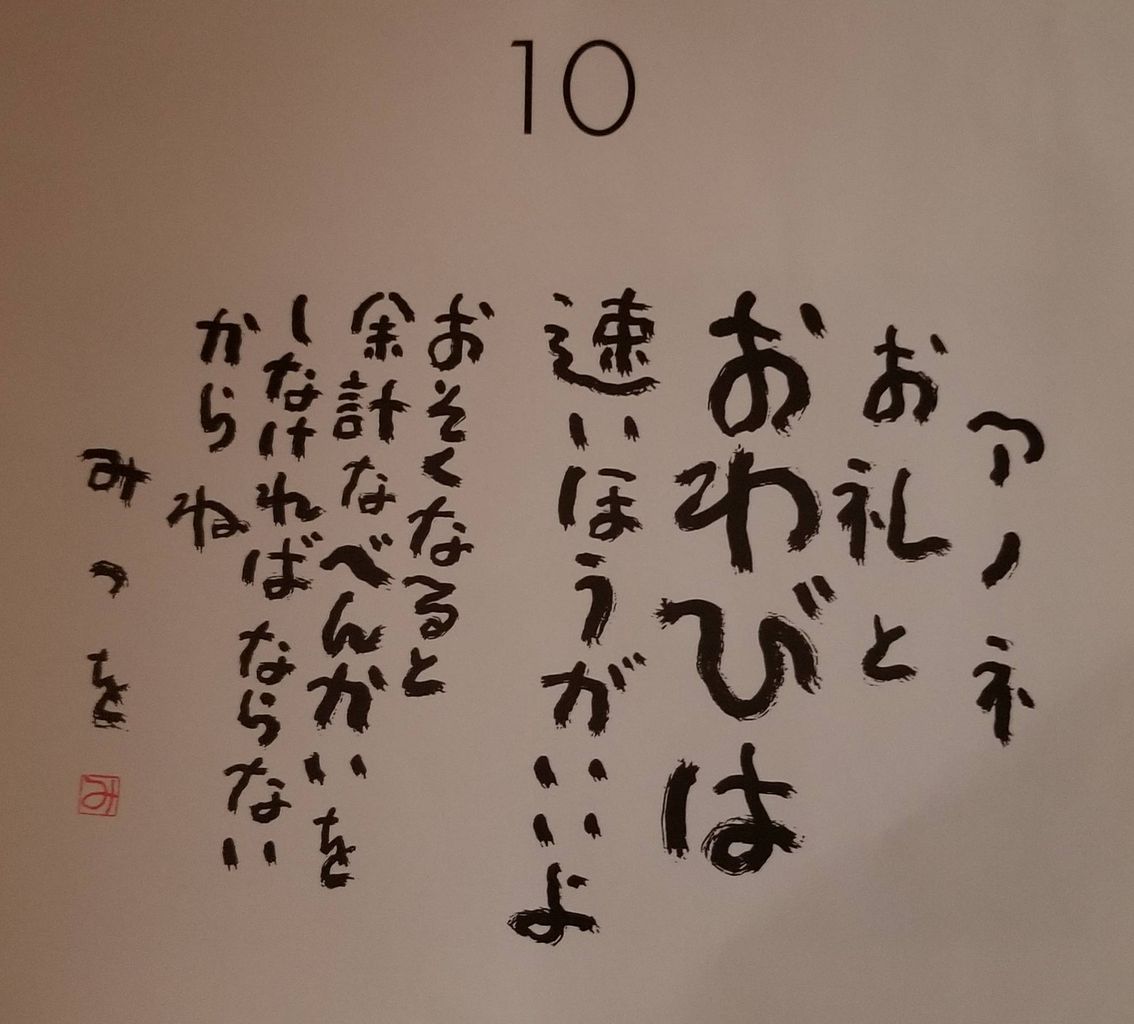 10
アノネ
お礼と
おわびは
速いほうがいいよ
おそくなると
余計なべんかいを
しなければならない
からね
みつを
み